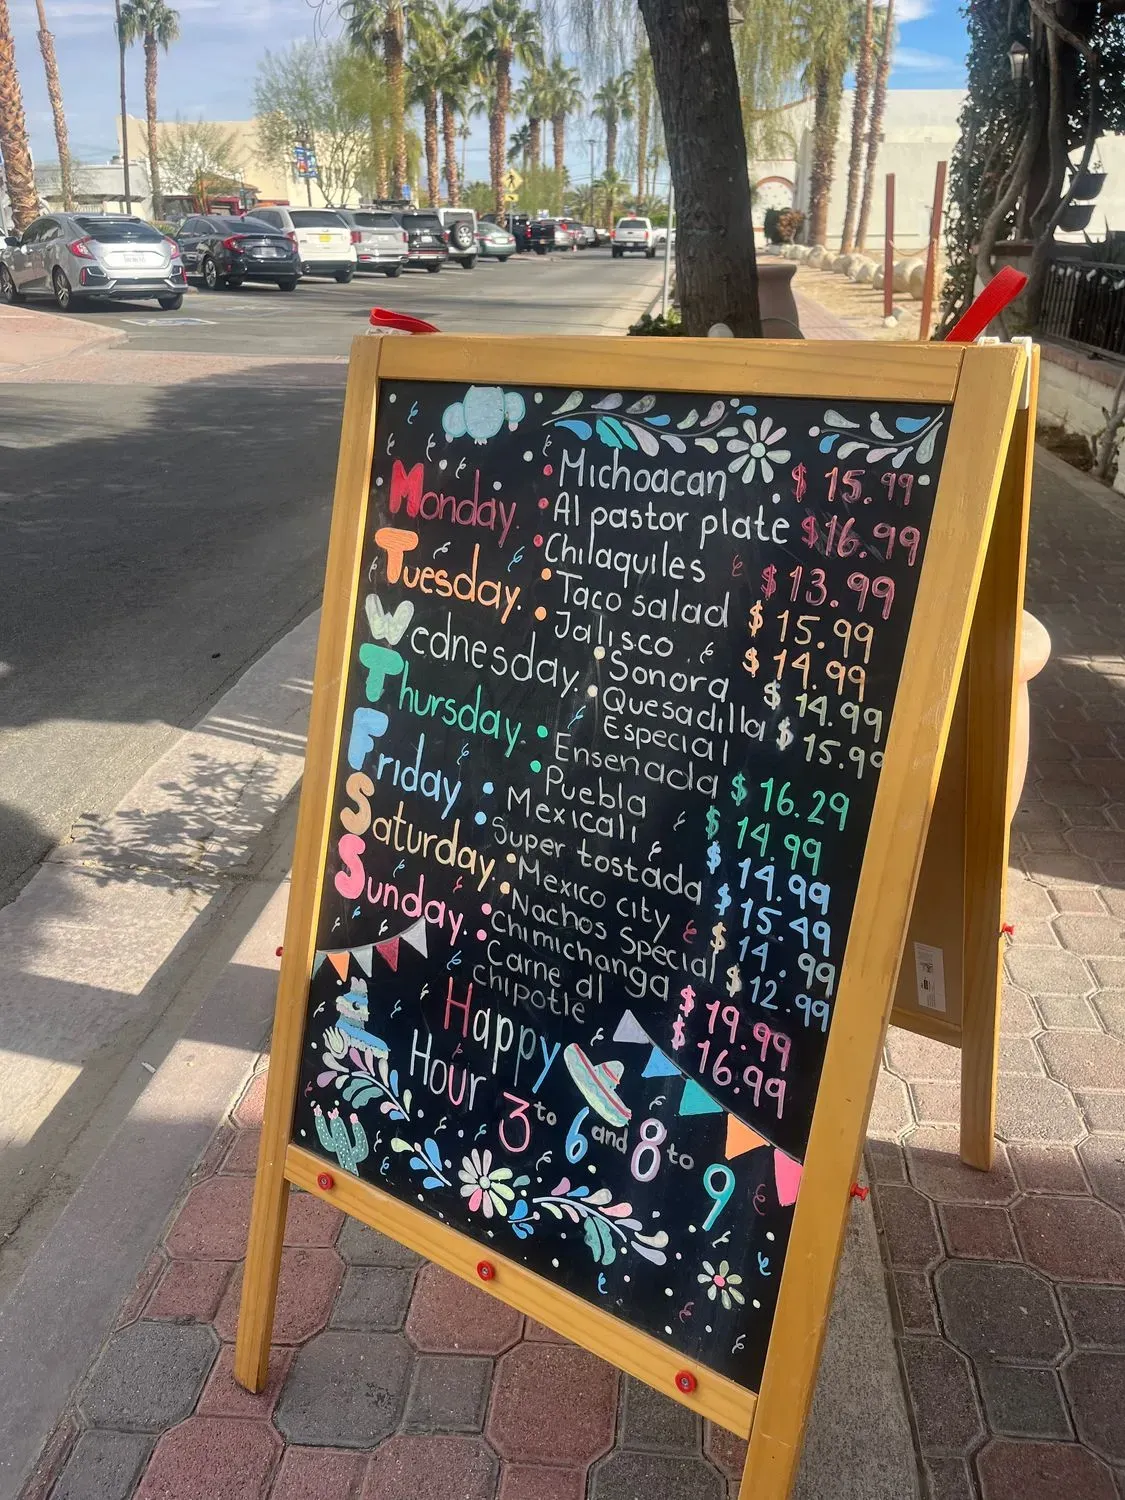 Michoacan $15.99
Monday. Al pastor plate $16.99
Chilaquiles $13.99
Tuesday. Taco salad $15.99
Jalisco $14.99
Wednesday. Sonora $14.99
Quesadilla $15.99
Especial
Thursday. Ensenada $16.29
Puebla $14.99
Friday Mexicali $14.99
Super tostada $15.49
Saturday. Mexico city $14.99
Nachos Special $12.99
Sunday. Chimichanga $19.99
Carne al $16.99
chipotle
Happy
Hour 3 to 6 and 8 to 9